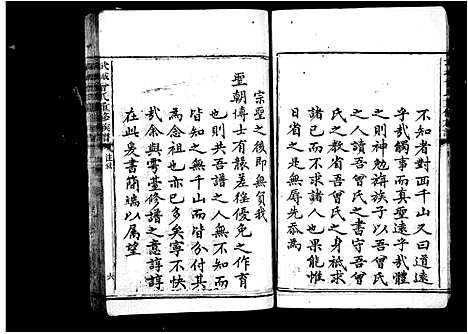 不知者對面千山又曰道遠
乎哉觸事而真聖遠乎哉體
之則神勉旃族子以吾曾氏
之人讀吾曾氏之書守吾曾
氏之教省吾曾氏之身祇求
諸己而不求諸人也果能惟
日省之是無辱先忝為
宗聖之後即無負我
聖朝博士有襲差徭優免之作育
也則共吾譜之無千山而分付其
皆知之無千山而
為念祖也亦已多矣寧不快
哉余與雩臺修譜之意諄諄
在此爰書簡端以属望
武城曾氏重修族譜
六